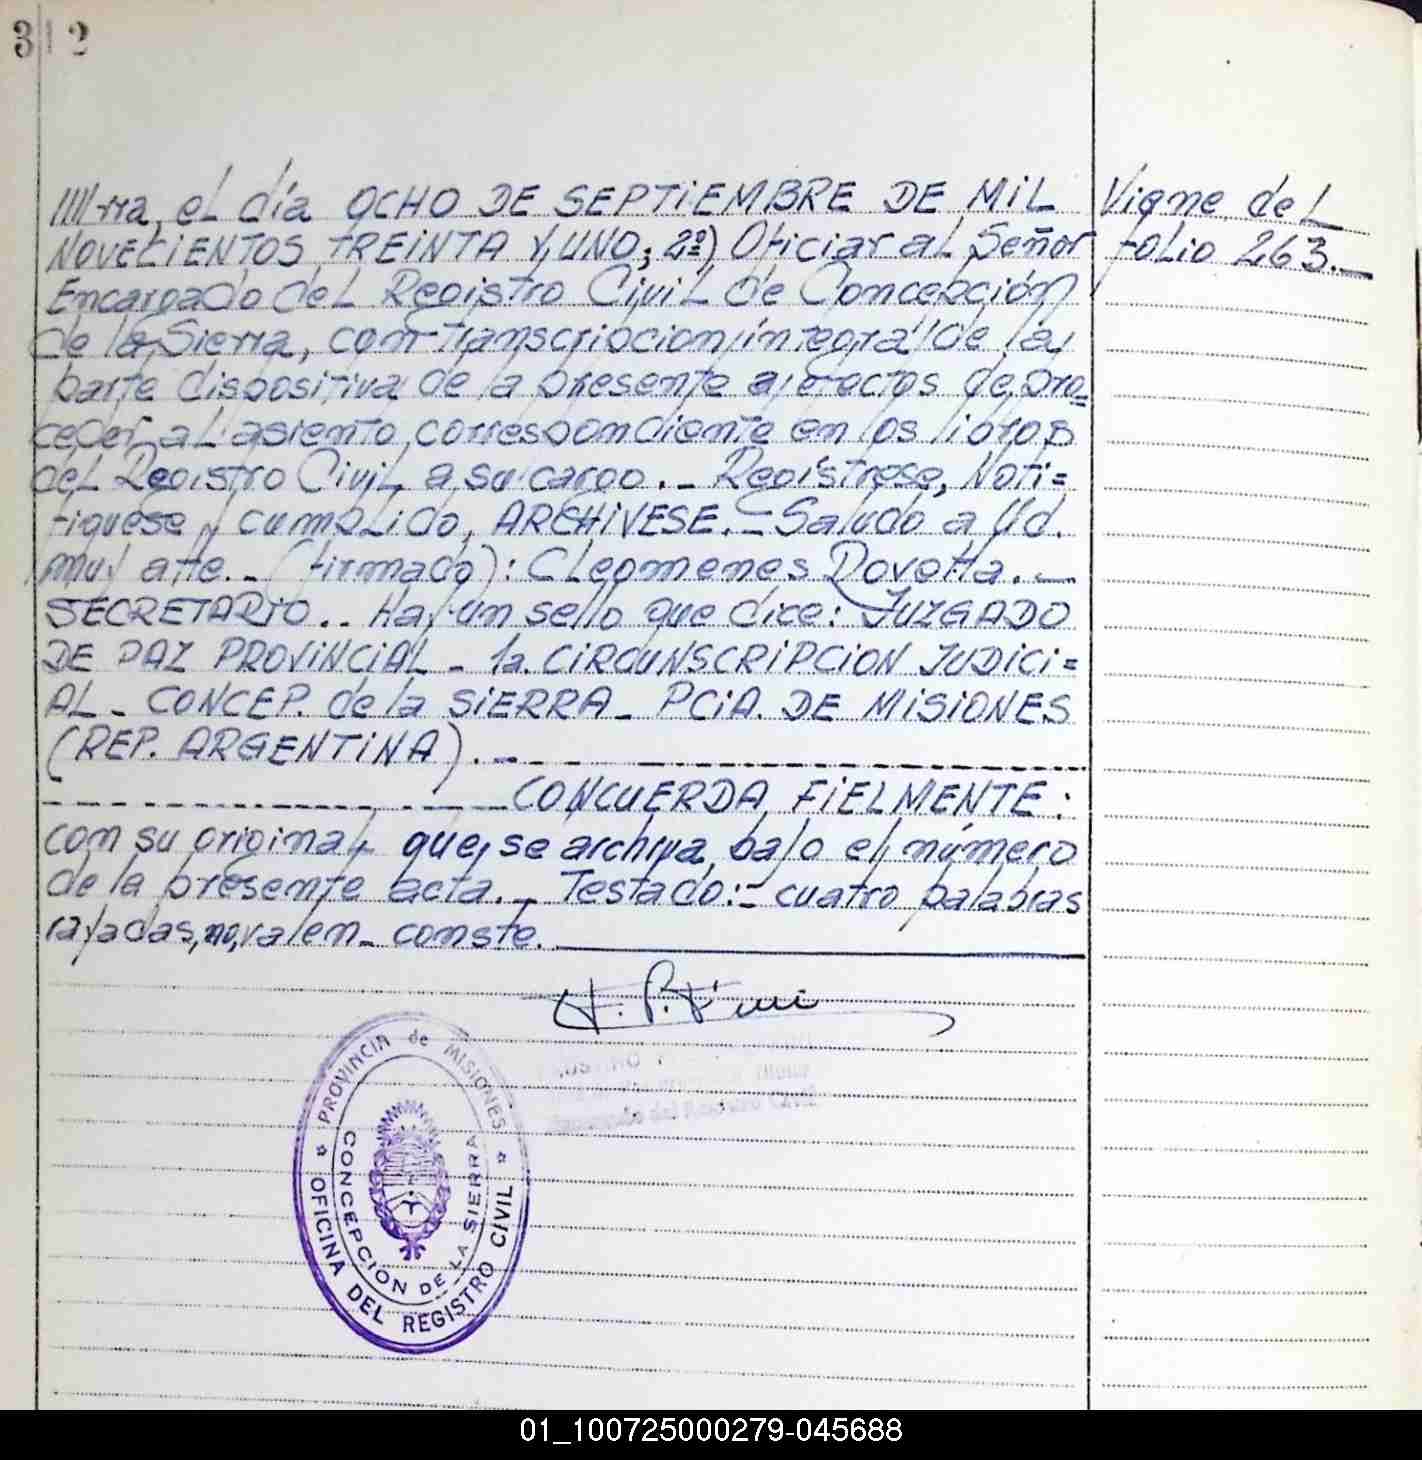 312
////rra, el día OCHO DE SEPTIEMBRE DE MIL
NOVECIENTOS TREINTA Y UNO; 2º) Oficiar al Señor
Encargado del Registro Civil de Concepción
de la Sierra, con transcripcion íntegra de la
parte dispositiva de la presente a efectos de pro=
ceder al asiento correspondiente en los libros
del Registro Civil a su cargo._ Regístrese, Noti=
fiquese y cumplido, ARCHIVESE._ Saludo a Ud.
muy atte._ (firmado): Cleomenes Dovetta._
SECRETARIO.. Hay un sello que dice: JUZGADO
DE PAZ PROVINCIAL_ 1a. CIRCUNSCRIPCION JUDICI=
AL_ CONCEP. de la SIERRA_ PCIA. DE MISIONES
(REP. ARGENTINA)._
CONCUERDA FIELMENTE:
con su original que se archiva bajo el número
de la presente acta._ Testado:_ cuatro palabras
rayadas, no, valen_ conste.
Viene del
folio 263._
PROVINCIA de MISIONES
OFICINA DEL REGISTRO CIVIL
CONCEPCIÓN DE LA SIERRA
01_100725000279-045688